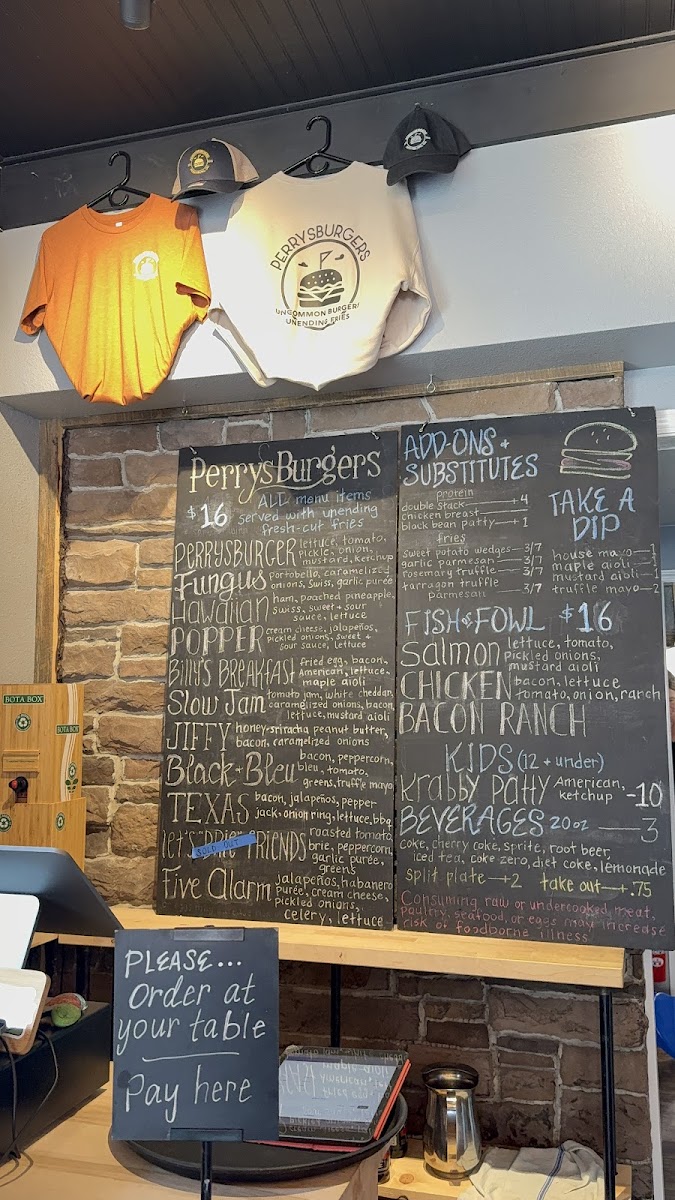 PERRYSBURGERS
UNCOMMON BURGERS
UNENDING FRIES
PerrysBurgers
$16 ALL menu items
served with unending
fresh-cut fries
PERRYSBURGER lettuce, tomato,
pickle, onion,
mustard, ketchup
Fungus portobello, caramelized
onions, swiss, garlic purée
Hawaiian ham, poached pineapple,
swiss, sweet + sour
sauce, lettuce
POPPER cream cheese, jalapeños,
pickled onions, sweet +
sour sauce, lettuce
Billy's BREAKFAST fried egg, bacon,
American, lettuce,
maple aioli
Slow Jam tomato jam, white cheddar,
caramelized onions, bacon,
lettuce, mustard aioli
JIFFY honey-sriracha peanut butter,
bacon, caramelized onions
Black + Bleu bacon, peppercorn,
bleu, tomato,
greens, truffle mayo
TEXAS bacon, jalapeños, pepper
jack, onion ring, lettuce, bbq
let's "BRIE" FRIENDS roasted tomato,
brie, peppercorn,
garlic purée,
greens
SOLD OUT
Five Alarm jalapeños, habanero
purée, cream cheese,
pickled onions,
celery, lettuce
ADD-ONS +
SUBSTITUTES
protein
double stack +4
chicken breast
black bean patty +1
fries
sweet potato wedges 3/7
garlic parmesan 3/7
rosemary truffle 3/7
tarragon truffle
parmesan 3/7
TAKE A
DIP
house mayo 1
maple aioli 1
mustard aioli 1
truffle mayo 2
FISH & FOWL $16
Salmon lettuce, tomato,
pickled onions,
mustard aioli
CHICKEN bacon, lettuce
tomato, onion, ranch
BACON RANCH
KIDS (12 + under)
Krabby Patty American,
ketchup -10
BEVERAGES 20oz 3
coke, cherry coke, sprite, root beer,
iced tea, coke zero, diet coke, lemonade
split plate +2 take out +.75
Consuming raw or undercooked meat,
poultry, seafood, or eggs may increase
risk of foodborne illness
BOTA BOX
BOTA BOX
PLEASE...
Order at
your table
Pay here